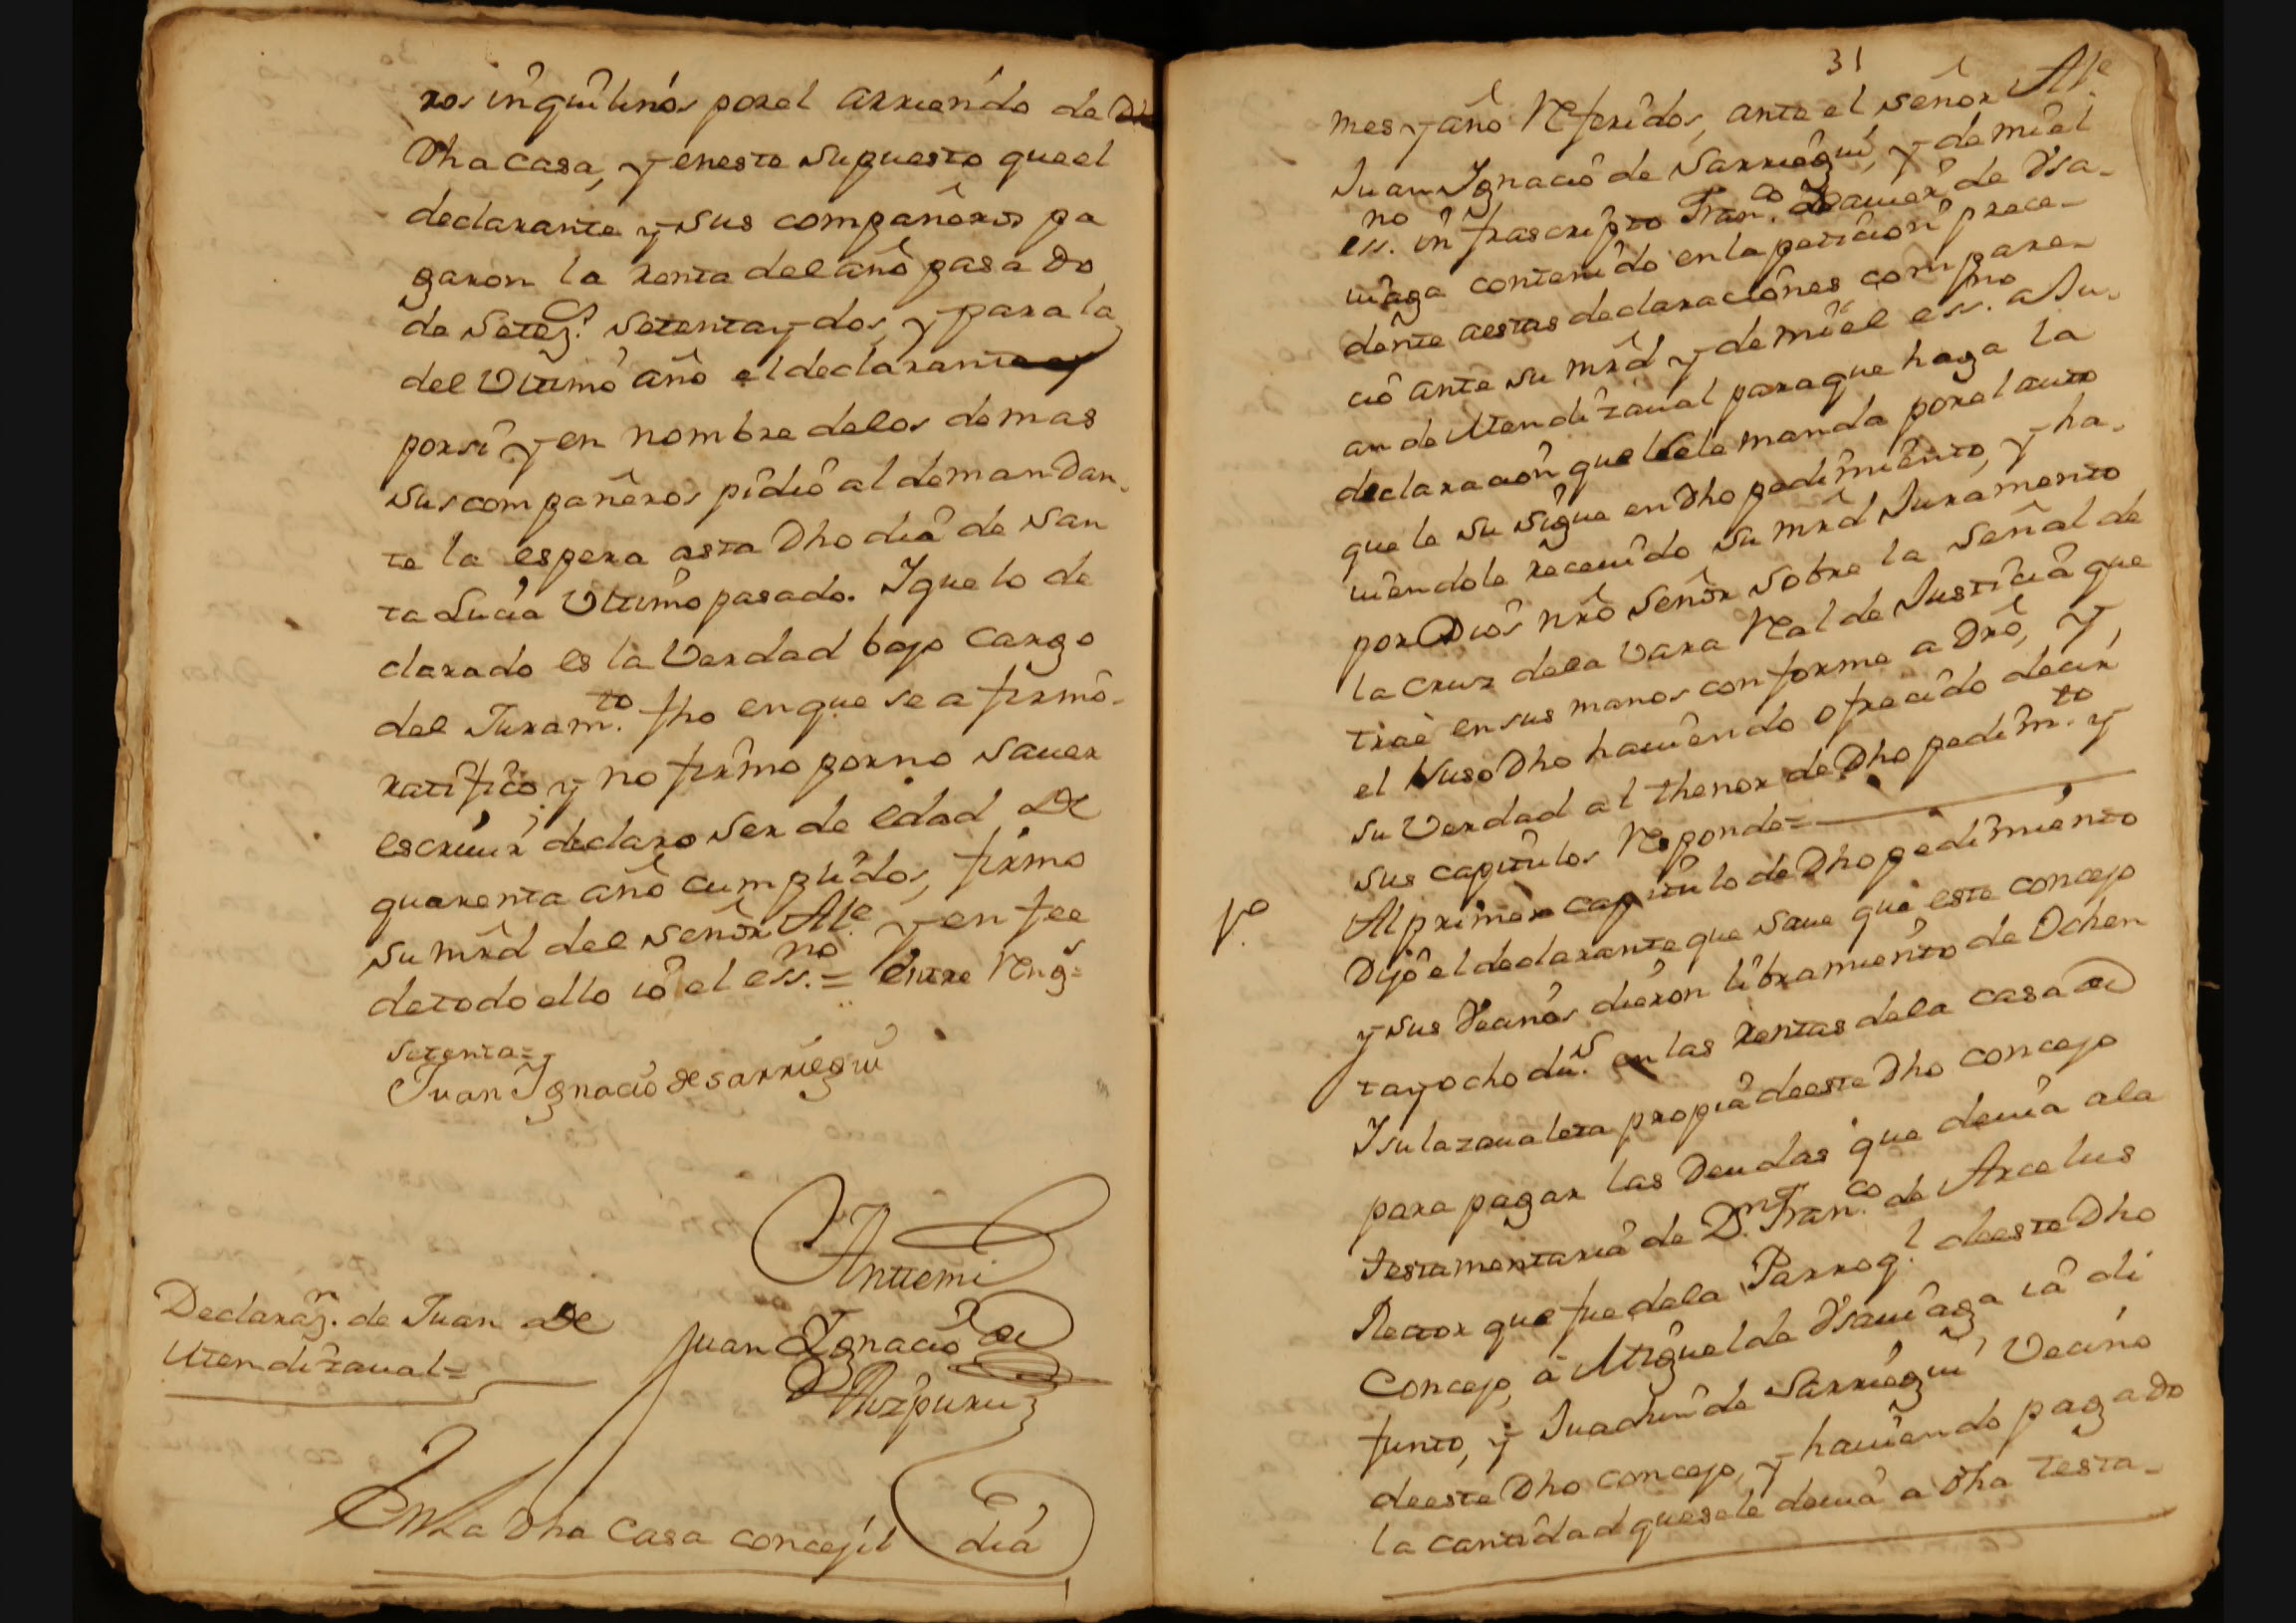 ros inquilinos por el arriendo de
Dha casa, y en este supuesto que el
declarante y sus compañeros pa
garon la renta del año pasado
de Setez.s setenta y dos, y para la
del Ultimo año el declarante
por si y en nombre de los demas
sus compañeros pidio al demandan-
te la espera asta Dho dia de San
ta Lucia Ultimo pasado. Y que lo de
clarado es la Verdad bajo cargo
del Juram.to fho en que se afirmo-
ratifico y no firmo por no saver
escriuir declaro ser de edad De
quarenta año cumplidos, firmo
su mrd del señor Al.e y en fee
de todo ello io el ess.no = Entre Reng.s
setenta=
Juan Ygnacio de Sarriegui
Antemi
Juan Ygnacio de
Aizpuru
Declaraz.n de Juan De
Utendizaual=
En La Dha Casa concejil dia
31
mes y año Referidos, ante el señor Al.e
Juan Ygnacio de Sarriegui, y de mi el
ess.no infrascripto Fran.co Xavier de Ysa-
uiaga contenido en la peticion prece-
dente a estas declaraciones compare-
cio ante su mrd y de mi el ess.no a Ju-
an de Utendizaual para que haga la
declaracion que se le manda por el auto
que le su sigue en Dho pedimiento, y ha-
uiendole receuido su mrd Juramento
por Dios nrõ Señor sobre la señal de
la cruz dela Vara Real de Justicia que
trae en sus manos conforme a Drõ, y
el Suso Dho hauiendo ofrecido decir
su Verdad al thenor de Dho pedim.to y
sus capitulos Responde=
1.o Al primer capitulo de Dho pedimiento
Dijo el declarante que saue que este concejo
y sus Vecinos dieron libramiento de Ochen
ta y ocho du.s en las rentas dela casa de
Ysulazaualeta propia de este Dho concejo
para pagar las Deudas que deuia ala
testamentaria de D.n Fran.co de Arcelus
Rector que fue dela Parroq.l de este Dho
Concejo, a Miguel de Ysauiaga ia di
funto, y Juachin de Sarriegui Vecino
de este Dho concejo, y hauiendo pagado
la cantidad que se le deuia a Dha testa-